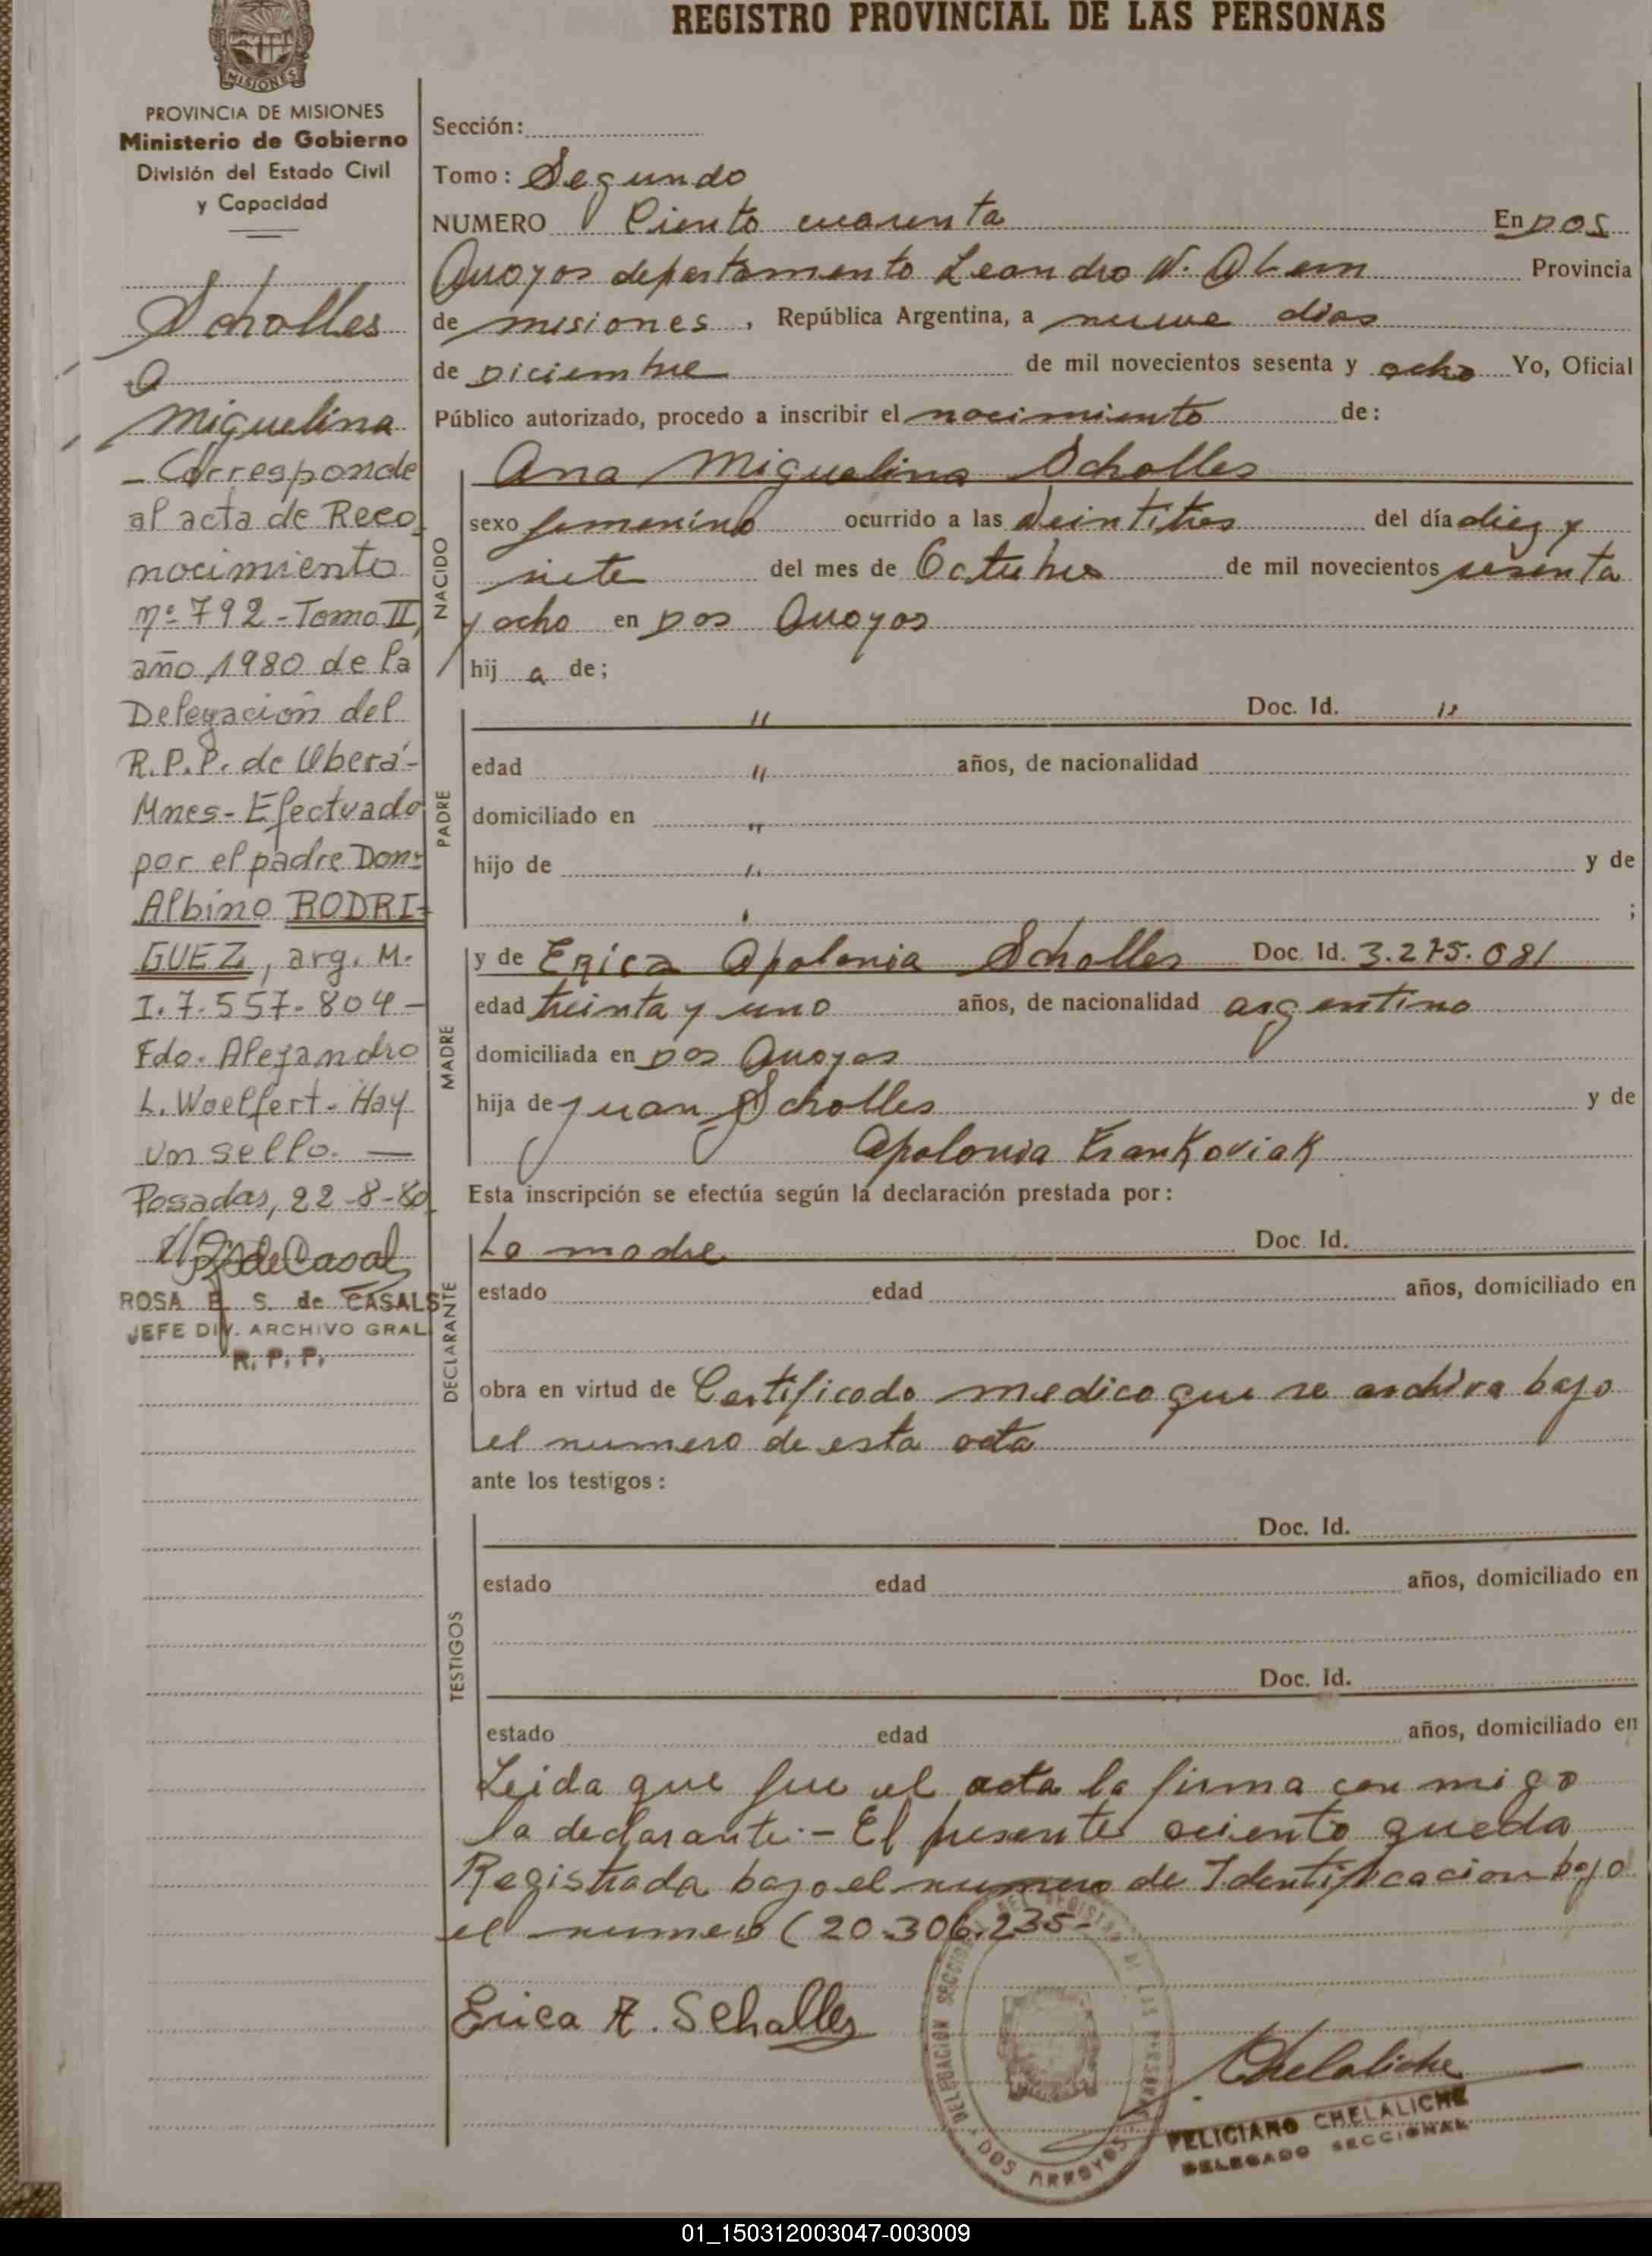 REGISTRO PROVINCIAL DE LAS PERSONAS
MISIONES
PROVINCIA DE MISIONES
Ministerio de Gobierno
División del Estado Civil
y Capacidad
Scholles
A
Miguelina
- Corresponde
al acta de Reco
nocimiento
nº 792 - Tomo II,
año 1980 de la
Delegación del
R.P.P. de Oberá-
Mnes- Efectuado
por el padre Don:
Albino RODRI-
GUEZ, arg. M.
I. 7.557.804-
Fdo. Alejandro
L. Woelfert. Hay
un sello. —
Posadas, 22-8-80
ROSA E. S. de CASALS
JEFE DIV. ARCHIVO GRAL
R. P. P.
Sección:
Tomo: Segundo
NUMERO Ciento cuarenta En Dos
Arroyos departamento Leandro N. Alem Provincia
de misiones, República Argentina, a nueve dias
de Diciembre de mil novecientos sesenta y ocho Yo, Oficial
Público autorizado, procedo a inscribir el nacimiento de:
NACIDO
Ana Miguelina Scholles
sexo femenino ocurrido a las veintitres del día diez y
siete del mes de Octubre de mil novecientos sesenta
y ocho en Dos Arroyos
hij a de;
PADRE
" Doc. Id. "
edad " años, de nacionalidad
domiciliado en "
hijo de " y de
;
MADRE
y de Erica Apolonia Scholles Doc. Id. 3.275.081
edad treinta y uno años, de nacionalidad argentino
domiciliada en Dos Arroyos
hija de Juan Scholles y de
Apolonia Frankoviak
Esta inscripción se efectúa según la declaración prestada por:
DECLARANTE
La madre Doc. Id.
estado edad años, domiciliado en
obra en virtud de Certificado medico que se archiva bajo
el numero de esta acta
ante los testigos:
TESTIGOS
Doc. Id.
estado edad años, domiciliado en
Doc. Id.
estado edad años, domiciliado en
Leida que fue el acta la firma con migo
la declarante.- El presente aciento queda
Registrada bajo el numero de Identificacion bajo
el numero (20.306.235-
Erica A. Scholles
DELEGACION SECCIONAL DEL REGISTRO DE LAS PERSONAS
DOS ARROYOS
Chelaliche
FELICIANO CHELALICHE
DELEGADO SECCIONAL
01_150312003047-003009